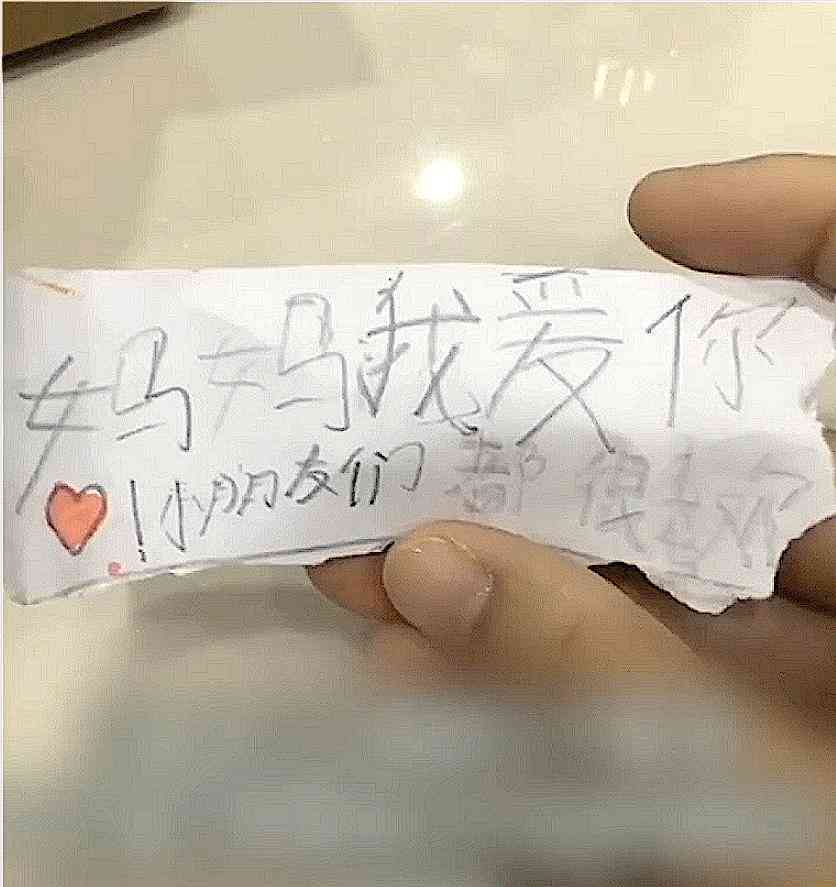 妈妈我爱你
❤!小朋友们都很喜欢